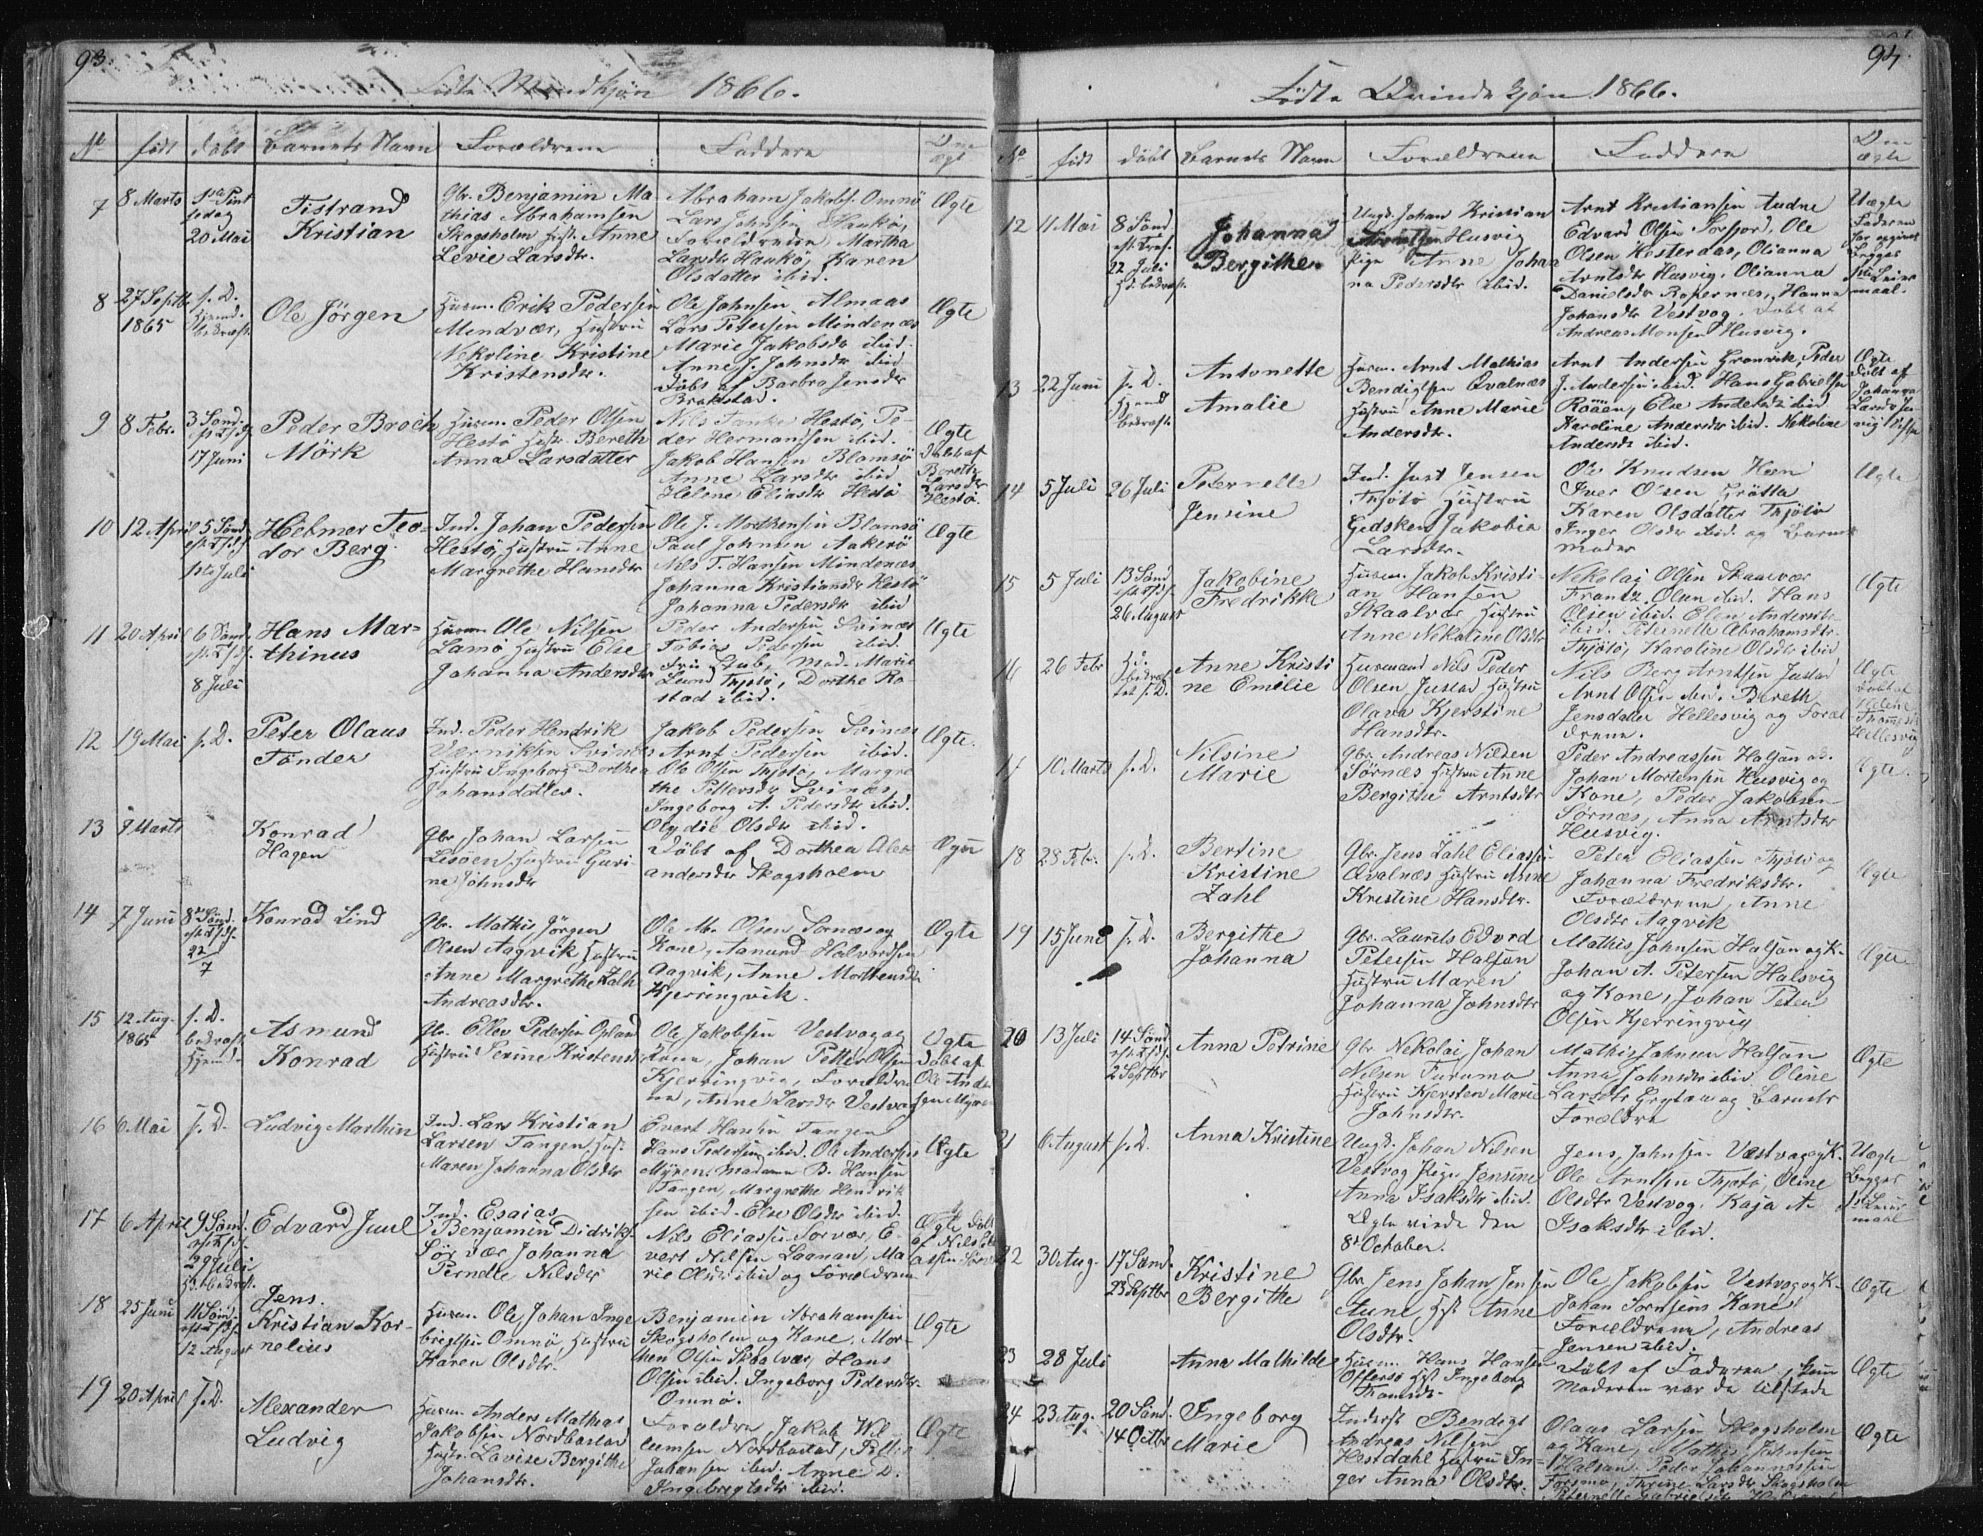 93.
Födte Mandkjön 1866.
No født döbt Barnets Navn Forældrene Faddere
7 8 Marts 20 Mai Tistrand Kristian
Gbr. Benjamin Ma
thias Abrahamsen
Skogsholm Hust. Anne
Levie Larsdtr.
Abraham Jakobs. Omnö
Lars Johnsen Haukö,
Forældrene, Martha
Larsdtr Haukö, Karen
Olsdatter ibid.
Ægte
8 27 Septbr 1865 s. D. Hjemd. bekræft. Ole Jörgen
Husm. Erik Pedersen
Mindvær, Hustru
Nekoline Kristine
Kristensdtr.
Ole Johnsen Almaas
Lars Petersen Mindenæs
Marie Jakobsdtr ibid.
Anne J. Johnsdtr ibid
Döbt af Barbro Jensdtr
Brakstad.
Ægte
9 8 Febr. 3 Sönd. 17 Juni Peder Broch
Mörk
Husm. Peder Olsen
Hestö Hustr. Bereth
Anna Larsdatter
Nils Tanke Hestö, Pe-
der Hermansen ibid.
Jakob Hansen Blomsö
Anne Larsdtr ibid
Helene Eliasdtr Hestö
Ægte
Döbt af
Bereth
Larsdtr
Hestö.
10 12 April 5 Sönd 1ste Juli Helmer Teo-
dor Berg.
Ind. Johan Pedersen
Hestö, Hustru Anne
Margrethe Hansdtr
Ole J. Mortensen Blomsö
Paul Johnsen Aakerö
Nils T. Hansen Mindenæs
Johanna Kristiansdtr Hestö
Johanna Pedersdtr ibid
Ægte
11 20 April 6 Sönd 8 Juli Hans Mar-
thinus
Husm. Ole Nilsen
Lamo Hustru Else
Johanna Andersdtr
Peder Andersen Svinæs
Tobias Pedersen ibid.
Fru Stub, Mad. Marie
Lund Thjötö, Dorthe Ro-
stad ibid.
Ægte
12 19 Mai s. D. Peter Olaus
Tönder
Ind. Peder Hendrik
Svinæs
Hustru Ingeborg Dorthea
Johansdatter.
Jakob Pedersen Svinæs
Arnt Pedersen ibid.
Ole Olsen Thjötö, Margre
the Pettersdtr Svinæs,
Ingeborg A. Pedersdtr ibid.
Olydie Olsdtr ibid.
Ægte.
13 9 Marts Konrad
Hagen
Gbr. Johan Larsen
Lisöen, Hustru Guri-
ne Johnsdtr
Döbt af Dorthea Alex
andersdtr Skogsholm
14 7 Juni 8de Sönd. 22/7 Konrad Lind
Gbr. Mathis Jörgen
Olsen Aagvik, Hustru
Anne Margrethe Falk
Andreasdtr.
Ole Mr. Olsen Sörnæs og
Kone, Aamund Halvordsen
Aagvik, Anne Mortensdtr
Kjerringvik.
Ægte
15 12 Aug. 1865 s. D. bekræft. Hjemd. Asmund
Konrad
Gbr. Ellev Pedersen Opland
Hustru Serine Kristensd
Ole Jakobsen Vestvog og
Kone, Johan Petter Olsen
Kjerringvig, Foreldre
ne, Anne Larsdtr Vestvog
Ægte
Döbt af
Ole Ander
sen Myren
16 6 Mai s. D. Ludvig Marthin
Ind. Lars Kristian
Larsen Tangen, Hust.
Maren Johanna Olsdtr
Evert Hansen Tangen
Hans Pedersen ibid. Ole Andersen
Myren. Madame B. Hansen
Tangen, Margrethe Hendrik
sen ibid. Else Olsdtr ibid.
Ægte
17 6 April 9 Sönd. 29 Juli Edvard Juul
Ind. Esaias
Benjamin Didriks.
Sörvær Johanna
Pernelle Nilsdtr
Nils Eliassen Sorvær, E-
vert Nilsen Laanan, Ma-
rie Olsdtr ibid og Forældrene
Ægte döbt
af Nils Eli
assen Sörvær
18 25 Juni 11 Sönd. 12 August Jens.
Kristian Kor-
nelius
Husm. Ole Johan Inge
brigtsen Omnö, Hustru
Karen Olsdtr.
Benjamin Abrahamsen
Skogsholm og Kone, Mor-
then Olsen Skaalvær, Hans
Olsen ibid. Ingeborg Pedersdtr.
Omnö.
Ægte
19 20 April s. D. Alexander
Ludvig
Husm. Anders Mathias
Jakobsen Nordbostad
Hustr. Lovise Bergithe
Johansdtr.
Forældre, Jakob Wil
lumsen Nordbostad, Petter
Johansen ibid. Anne D.
Ingebrigtsdtr ibid.
Ægte
94.
Födte Qvindekjön 1866.
No födt döbt Barnets Navn Forældrene Faddere
12 11 Mai 8 Sönd 22 Juli Johanna
Bergithe.
Ungk. Johan Kristian
Arntsen Husvig
Pige Anne Johan
na Pedersdtr ibid.
Arnt Kristiansen Audne
Edvard Olsen Sörfjord, Ole
Olsen Hesterdas, Olianna
Arntsdtr Husvig, Olianna
Danielsdtr Rosernæs, Hanna
Johansdtr Vestvog. Döbt af
Andreas Monsen Husvig.
Uægte
Begges
1ste Leier
maal.
13 22 Juni s. D. Hjemd bekræft. Antonette
Amalie
Husm. Arnt Mathias
Bendigtsen Qvalnæs
Hustru Anne Marie
Andersdtr.
Arnt Andersen Grönvik, Peder
J. Andersen ibid. Hans Gabrielsen
Roaaen, Else Andersdtr ibid
Karoline Andersdtr ibid. Nekoline
Andersdtr ibid.
Ægte
Döbt af
Johanna
14 5 Juli 26 Juli Peternelle
Jensine
Ind. Just Jensen
Thjötö Hustru
Gidsken Jakobia
Larsdtr.
Ole Knudsen Hæn
Iver Olsen Grötta
Karen Olsdatter Thjötö
Inger Olsdtr ibid. og Barnets
Moder
Ægte
15 5 Juli 13 Sönd 26 August Jakobine
Fredrikke
Husm. Jakob Kristi-
an Hansen
Skaalvær Hustru
Anne Nekoline Olsdtr
Nekolai Olsen Skaalvær
Frantz Olsen ibid. Hans
Olsen ibid. Elen Andersdtr
ibid. Peternelle Abrahamsdtr.
Thjötö, Karoline Olsdtr ibid
Ægte
16 26 Febr Hj. bekræf tet s. D. Anne Kristi
ne Emilie
Husmand Nils Peder
Olsen Justad Hustru
Olava Kjerstine
Hansdtr.
Nils Berg Arntsen Justad
Arnt Olsen ibid. Bereth
Jensdatter Hellesvig og Foræl-
drene.
Ægte
Döbt af
Helene
Hellesvig
17 10 Marts s. D. Nilsine
Marie
Gbr. Andreas Nilsen
Sörnæs Hustru Anne
Bergithe Arntsdtr
Peder Andreassen Halsan o.
Johan Mortensen Husvig og
Kone, Peder Jakobsen
Sörnæs, Anna Arntsdtr
Husvig.
Ægte.
18 28 Febr. s. D. Bertine
Kristine
Zahl
Gbr. Jens Zahl Eliassen
Qvalnæs Hustru Anne
Kristine Hansdtr.
Peter Eliassen Thjötö og
Johanna Fredriksdtr.
Forældrene, Anne
Olsdtr Aagvik
Ægte
19 15 Juni s. D. Bergithe
Johanna
Gbr. Laurits Edvord
Petersen Halsan
Hustru Maren
Johanna Johnsdtr
Mathis Johnsen Halsan og K.
Johan A. Petersen Halsvig
og Kone, Johan Peter
Olsen Kjerringvig
Ægte
20 13 Juli 14 Sönd 2 Septbr Anna Petrine
Gbr Nekolai Johan
Nilsen Furumo
Hustru Kjersten Marie
Johnsdtr.
Mathis Johnsen Halsan
Anna Johnsdtr ibid Oline
Larsdtr Grytaa og Barnets
Forældre
Ægte
21 6 August s. D. Anna Kristine
Ungk. Johan Nilsen
Vestvog Pige Jensine
Anna Isaksdtr ibid.
Ægte viede den
8de October.
Jens Johnsen Væstvog og K.
Ole Arntsen Thjötö, Oline
Olsdtr Vestvog. Kaja A.
Isaksdtr ibid.
Uægte
Begges
1ste Leier
maal
22 30 Aug. 17 Sönd. 23 Septbr Kristine
Bergithe
Gbr Jens Johan Jensen
Aune Hst Anne
Olsdtr.
Ole Jakobsen Vestvog og K.
Johan Sorntsens Kone
Forældrene, Andreas
Jensen ibid.
Ægte
23 28 Juli Anna Mathilde
Husm. Hans Hansen
Offersö Hst Ingeborg
Döbt af Faderen,
Moderen var da tilstede
Ægte
24 23 Aug. 20 Sönd. 14 Octbr Ingeborg
Marie
Inderst Bendigt
Andreas Nilsen
Hestdahl Hustru In-
ger Anna Olsdtr.
Olaus Larsen Skogsholm
og Kone, Mathis Johnsen
Halsan, Peder Johannessen
Forsmo, Thrine Larsdtr Skogsholm
Ægte